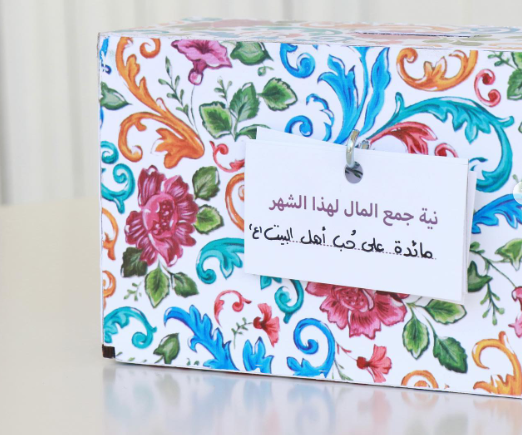 نية جمع المال لهذا الشهر
مائدة على حُب أهل البيت (ع)